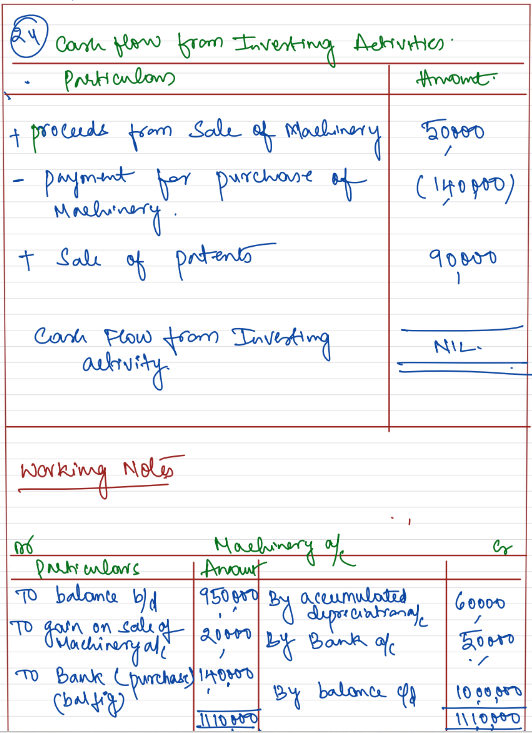 24 Cash flow from Investing Activities.
Particulars Amount.
+ proceeds from Sale of Machinery 50000
- payment for purchase of (140,000)
Machinery.
+ Sale of patents 90000
Cash Flow from Investing NIL.
activity.
Working Notes
Dr Machinery a/c Cr
Particulars Amount
To balance b/d 950,000 By accumulated 60000
depreciation a/c
To gain on sale of 20000 By Bank a/c 50000
Machinery a/c
To Bank (purchase) 140000
(bal fig) By balance c/d 1000,000
1110,000 1110,000